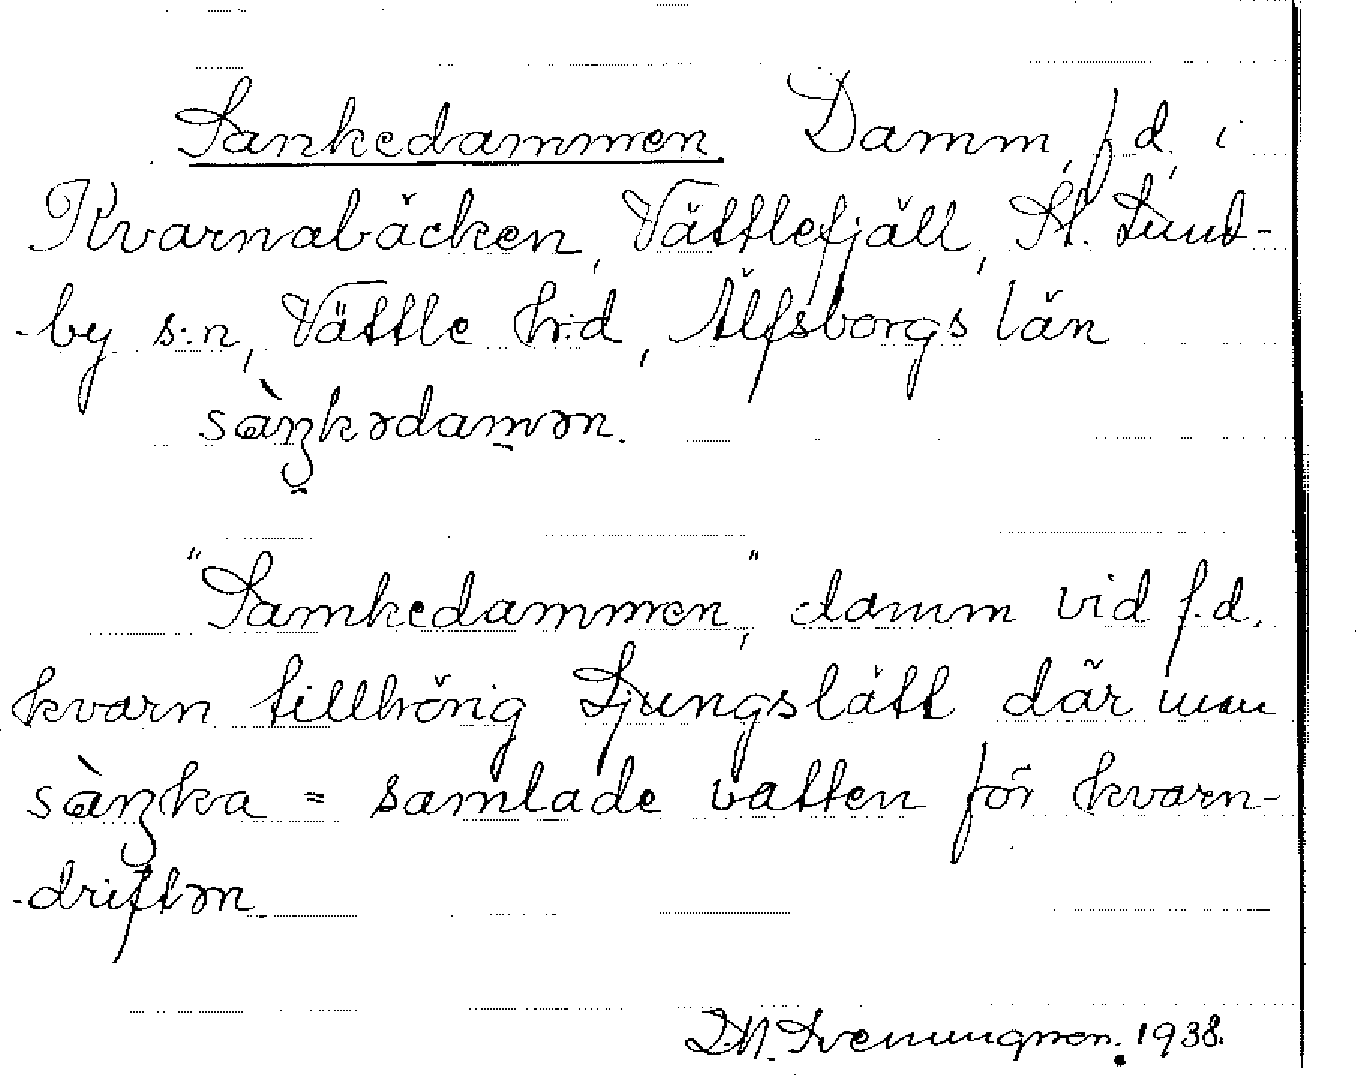 Sankedammen Damm, f.d., i
Kvarnabäcken, Vättlefjäll, St. Lund-
-by s:n, Vättle hrd, Älfsborgs län
sàŋkədamən.
"Sankedammen", damm vid f.d.
kvarn tillhörig Ljungslätt där man
sàŋka = samlade vatten för kvarn-
-driftən.
Svenungsson. 1938.